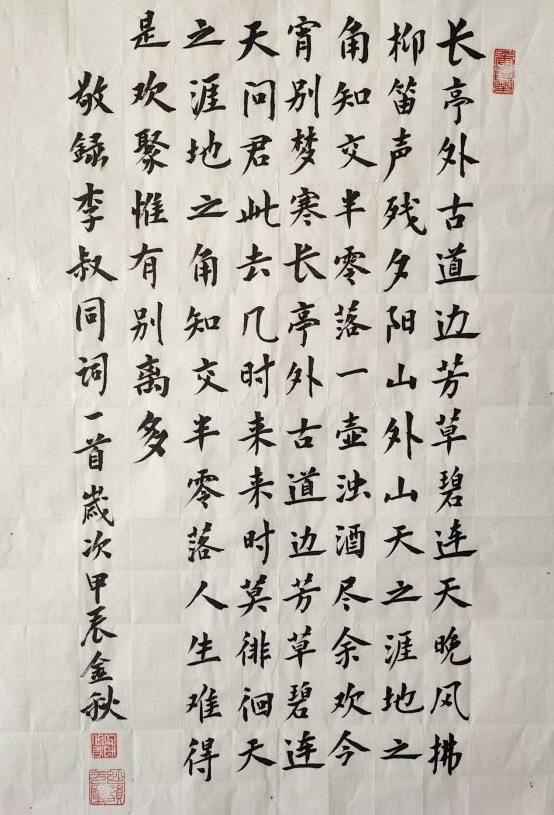 长亭外古道边芳草碧连天晚风拂
柳笛声残夕阳山外山天之涯地之
角知交半零落一壶浊酒尽余欢今
宵别梦寒长亭外古道边芳草碧连
天问君此去几时来来时莫徘徊天
之涯地之角知交半零落人生难得
是欢聚惟有别离多
敬录李叔同词一首岁次甲辰金秋